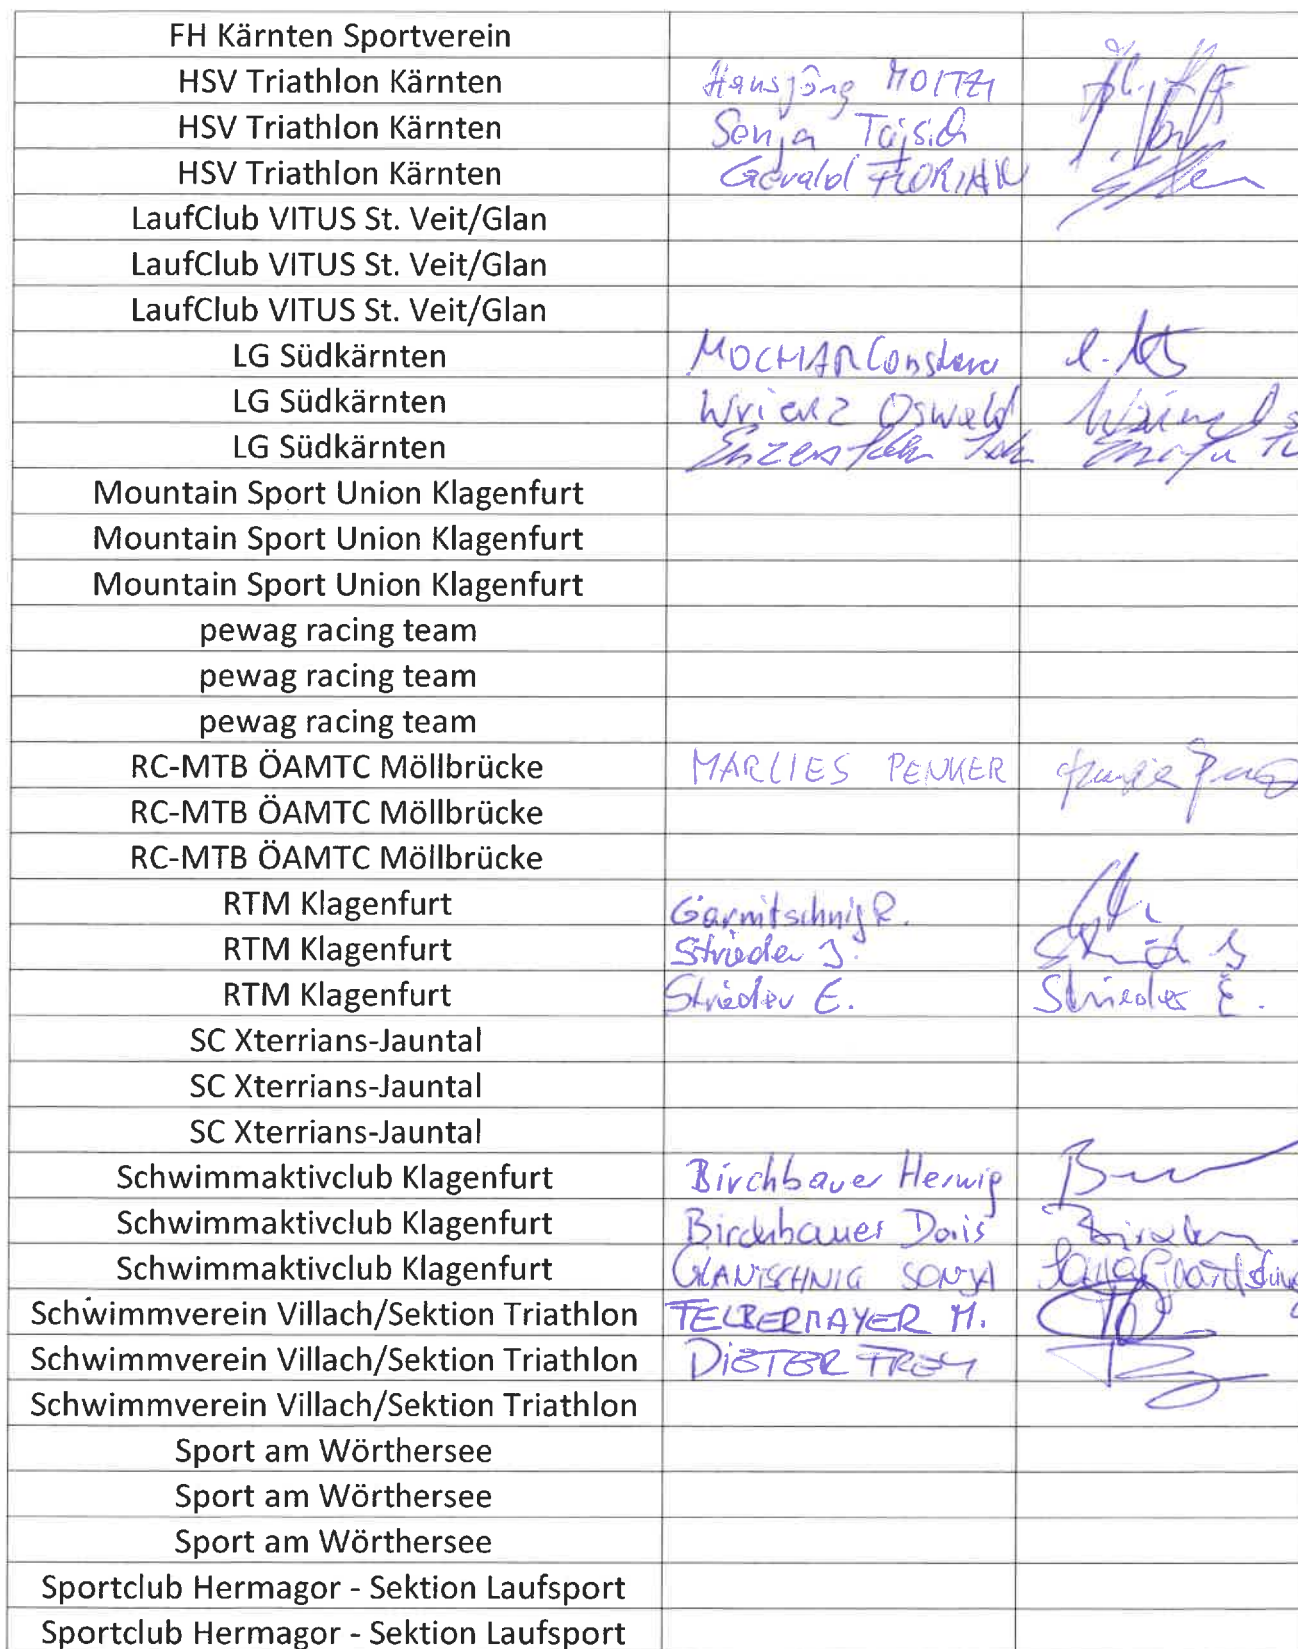 FH Kärnten Sportverein
HSV Triathlon Kärnten Hansjörg MOITZI
HSV Triathlon Kärnten Sonja Tajsich
HSV Triathlon Kärnten Gerald FLORIAN
LaufClub VITUS St. Veit/Glan
LaufClub VITUS St. Veit/Glan
LaufClub VITUS St. Veit/Glan
LG Südkärnten MOCHAR
LG Südkärnten Oswald
LG Südkärnten
Mountain Sport Union Klagenfurt
Mountain Sport Union Klagenfurt
Mountain Sport Union Klagenfurt
pewag racing team
pewag racing team
pewag racing team
RC-MTB ÖAMTC Möllbrücke MARLIES PENKER
RC-MTB ÖAMTC Möllbrücke
RC-MTB ÖAMTC Möllbrücke
RTM Klagenfurt Garnitschnig R.
RTM Klagenfurt Strieder J.
RTM Klagenfurt Strieder E. Strieder E.
SC Xterrians-Jauntal
SC Xterrians-Jauntal
SC Xterrians-Jauntal
Schwimmaktivclub Klagenfurt Birchbauer Herwig
Schwimmaktivclub Klagenfurt Birchbauer Doris
Schwimmaktivclub Klagenfurt GLANTSCHNIG SONJA
Schwimmverein Villach/Sektion Triathlon FELBERMAYER M.
Schwimmverein Villach/Sektion Triathlon DIETER FREY
Schwimmverein Villach/Sektion Triathlon
Sport am Wörthersee
Sport am Wörthersee
Sport am Wörthersee
Sportclub Hermagor - Sektion Laufsport
Sportclub Hermagor - Sektion Laufsport